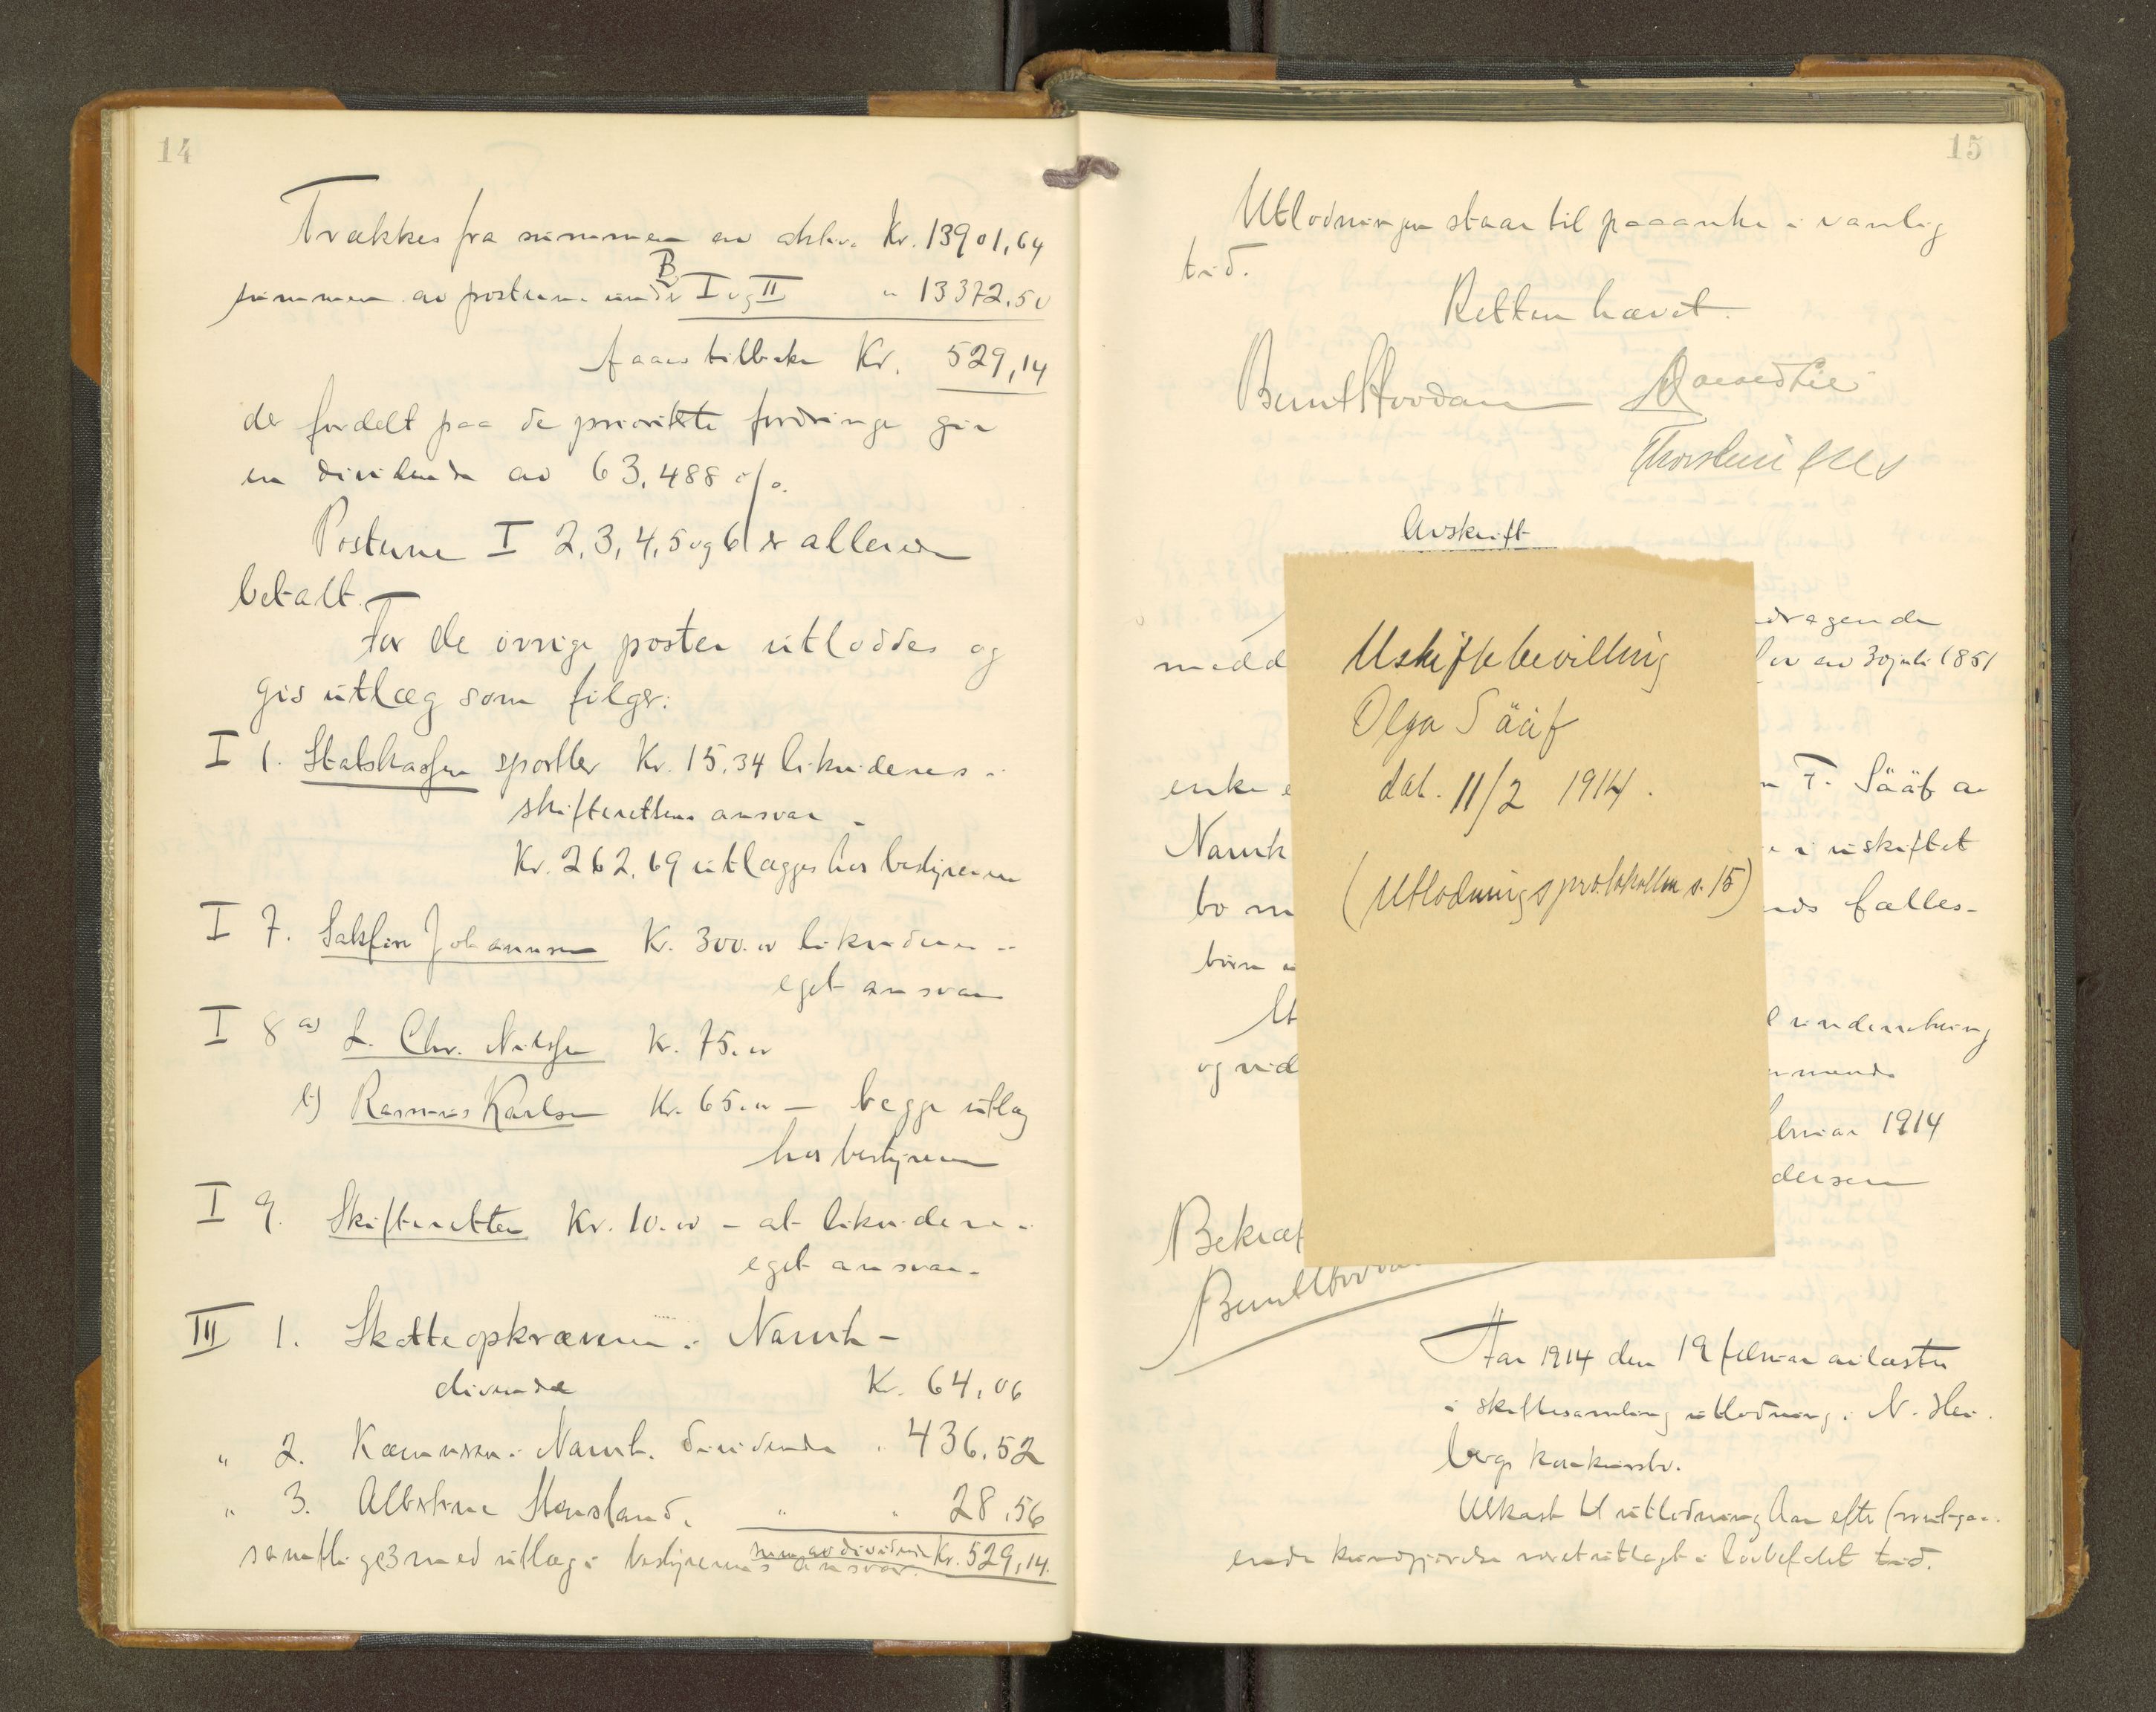 14
Trækkes fra summen av aktiva Kr. 13901,64
B
summen av posterne under I og II " 13372.50
faaes tilbake Kr. 529,14
der fordelt paa de prioriterte fordringer gir
en dividende av 63,488 o/o.
Posterne I 2, 3, 4, 5 og 6 er allerede
betalt.
For de øvrige poster utloddes og
gis utlæg som følger:
I 1. Statskassen sportler Kr. 15,34 likvideres i
skifterettens ansvar -
Kr. 262,69 utlægges hos bestyreren
I 7. Sakfører Johannsen Kr. 300.00 likvideres i
eget ansvar
I 8 a) L. Chr. Nilssen Kr. 75.00
b) Rasmus Karlsen Kr. 65.00 - begge utlæg
hos bestyreren
I 9. Skifteretten Kr. 10.00 - at likvidere i
eget ansvar.
III 1. Skatteopkræveren i Narvik -
dividende Kr. 64,06
" 2. Kæmneren i Narvik dividende " 436.52
" 3. Stensland. " " 28,56
sum av dividende Kr. 529,14.
samtlige 3 med utlæg i bestyrerens ansvar.
15
Utlodningen staar til paaanke i vanlig
tid.
Retten hævet.
Avskrift
dragende
medd av 30 juli 1851
enke e F. Sääf av
Narvik i uskiftet
bo m fælles-
børn
Ut
og vid
februar 1914
dersen
Bekræf
Uskiftebevilling
Olga Sääf
dat. 11/2 1914.
(Utlodningsprotokollen s. 15)
Aar 1914 den 19 februar avlastes
i skiftesamling utlodning i N. Hei-
bergs konkursbo.
Utkast til utlodning har efter forutgaa-
ende kundgjørelse været utlagt i lovbefalt tid.